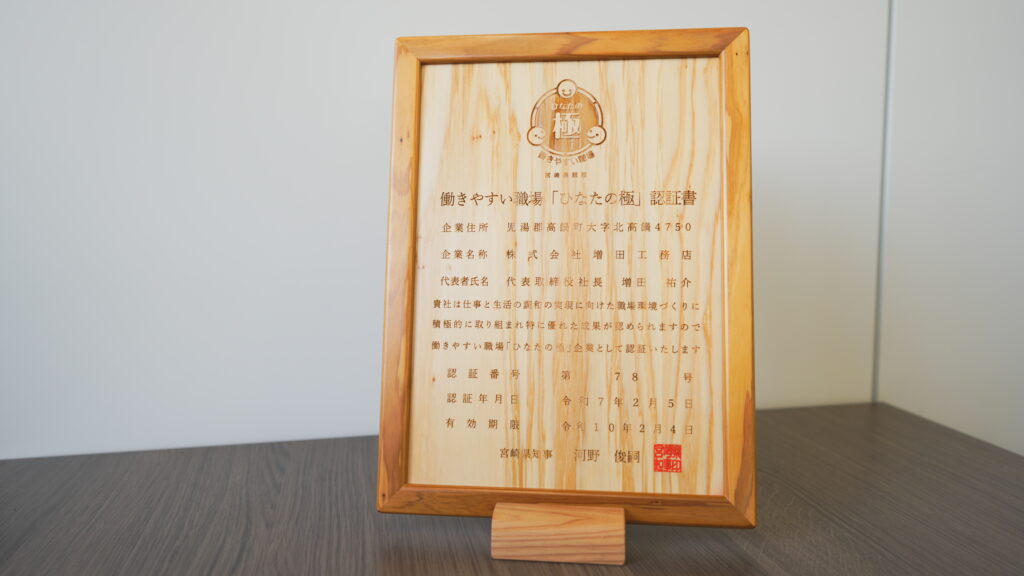 ひなたの
極
働きやすい職場
働きやすい職場「ひなたの極」認証書
企業住所 児湯郡高鍋町大字北高鍋4750
企業名称 株式会社増田工務店
代表者氏名 代表取締役社長 増田 祐介
貴社は仕事と生活の調和の実現に向けた職場環境づくりに
積極的に取り組まれ特に優れた成果が認められますので
働きやすい職場「ひなたの極」企業として認証いたします
認証番号 第78号
認証年月日 令和7年2月5日
有効期限 令和10年2月4日
宮崎県知事 河野 俊嗣